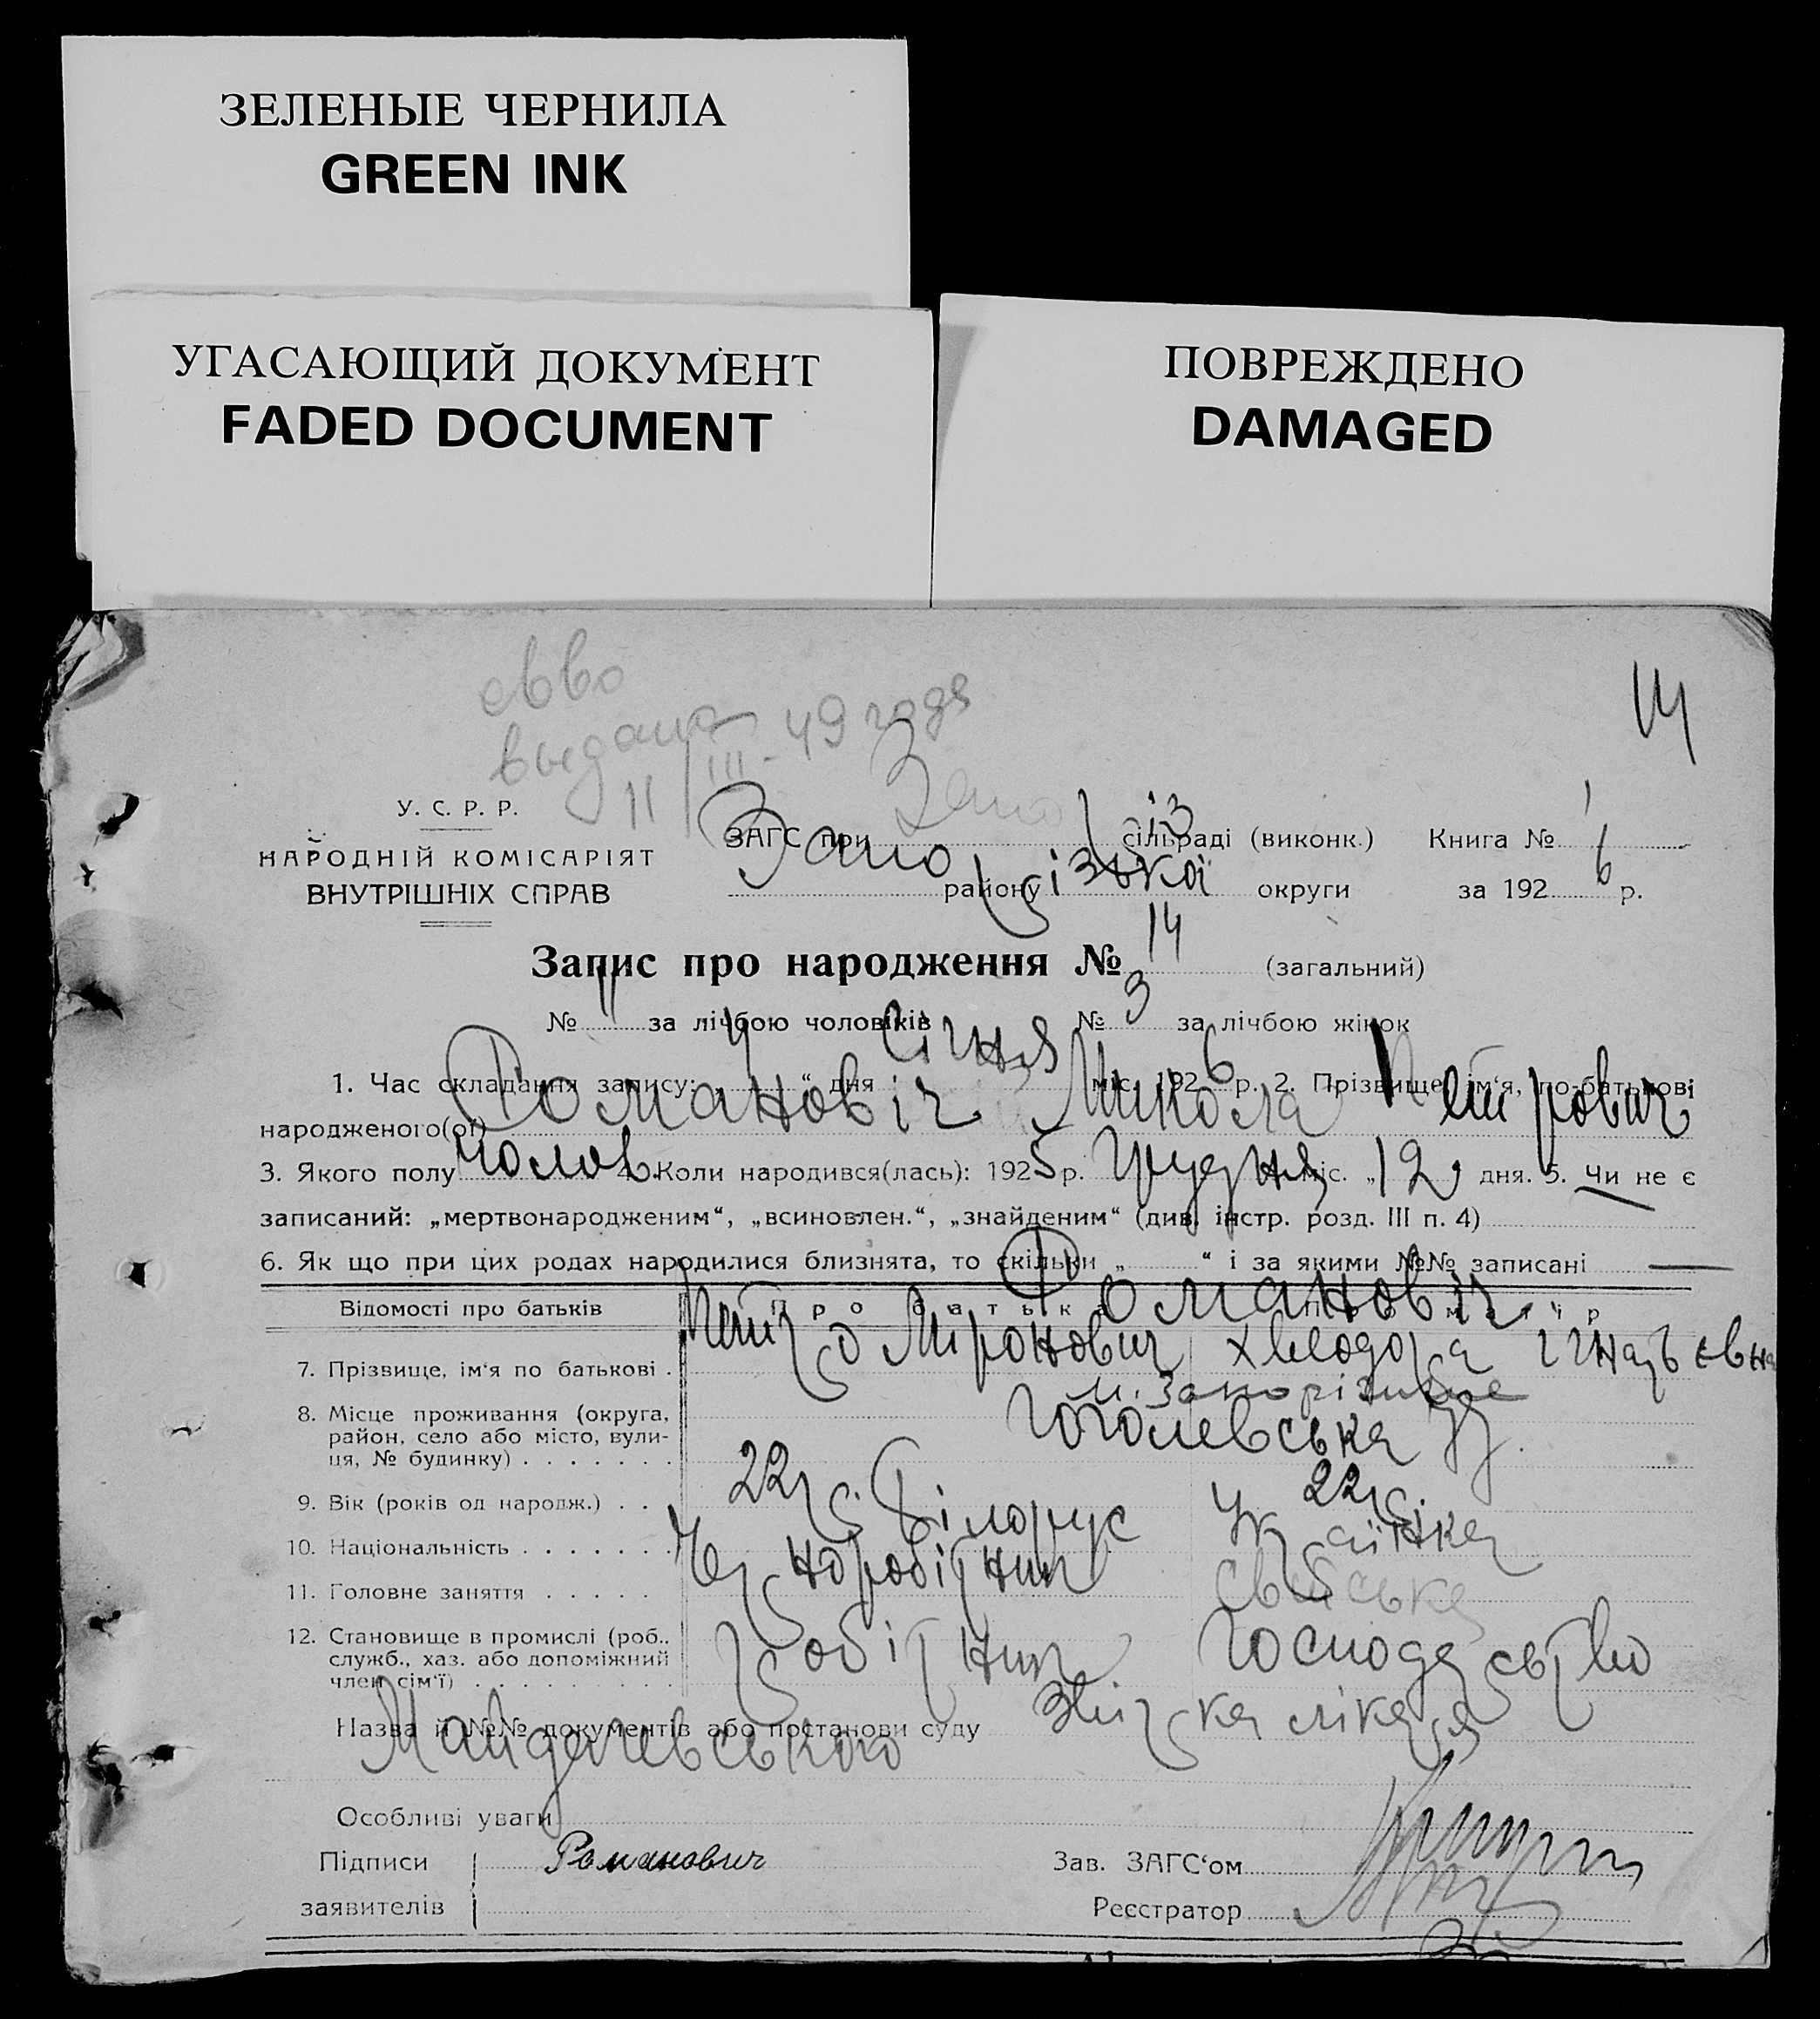 ЗЕЛЕНЫЕ ЧЕРНИЛА
GREEN INK
УГАСАЮЩИЙ ДОКУМЕНТ
FADED DOCUMENT
ПОВРЕЖДЕНО
DAMAGED
выдано
11/III-49 года
14
У. С. Р. Р.
НАРОДНІЙ КОМІСАРІЯТ
ВНУТРІШНІХ СПРАВ
ЗАГС при сільраді (виконк.) Книга № 1
району Запорізької округи за 1926 р.
Запис про народження № 14 (загальний)
№ 11 за лічбою чоловіків № 3 за лічбою жінок
1. Час складання запису: „4“ дня Січня міс. 1926 р. 2. Прізвище, ім‘я, по-батькові
народженого(ої) Романовіч Микола Петрович
3. Якого полу чолов. 4. Коли народився(лась): 1925 р. Грудня міс. „12„ дня. 5. Чи не є
записаний: „мертвонародженим“, „всиновлен.“, „знайденим“ (див. інстр. розд. III п. 4)
6. Як що при цих родах народилися близнята, то скільки „ “ і за якими №№ записані —
Відомості про батьків Про батька Про матір
Романовіч
7. Прізвище, ім‘я по батькові . Петро Міронович Хведора Ігнатьєвна
8. Місце проживання (округа, м. Запоріжжє
район, село або місто, вули- Гоголевська
ця, № будинку) . . . . . . .
9. Вік (років од народж.) . . 22 р. 22 р.
10. Національність . . . . . . . Білорус Українка
11. Головне заняття . . . . . Чорноробітник свійське
12. Становище в промислі (роб., робітник господарство
служб., хаз. або допоміжний
член сім‘ї) . . . . . . . . . .
Назва й №№ документів або постанови суду лікаря
Майдачевського
Особливі уваги
Підписи Романович Зав. ЗАГС‘ом
заявителів Реєстратор